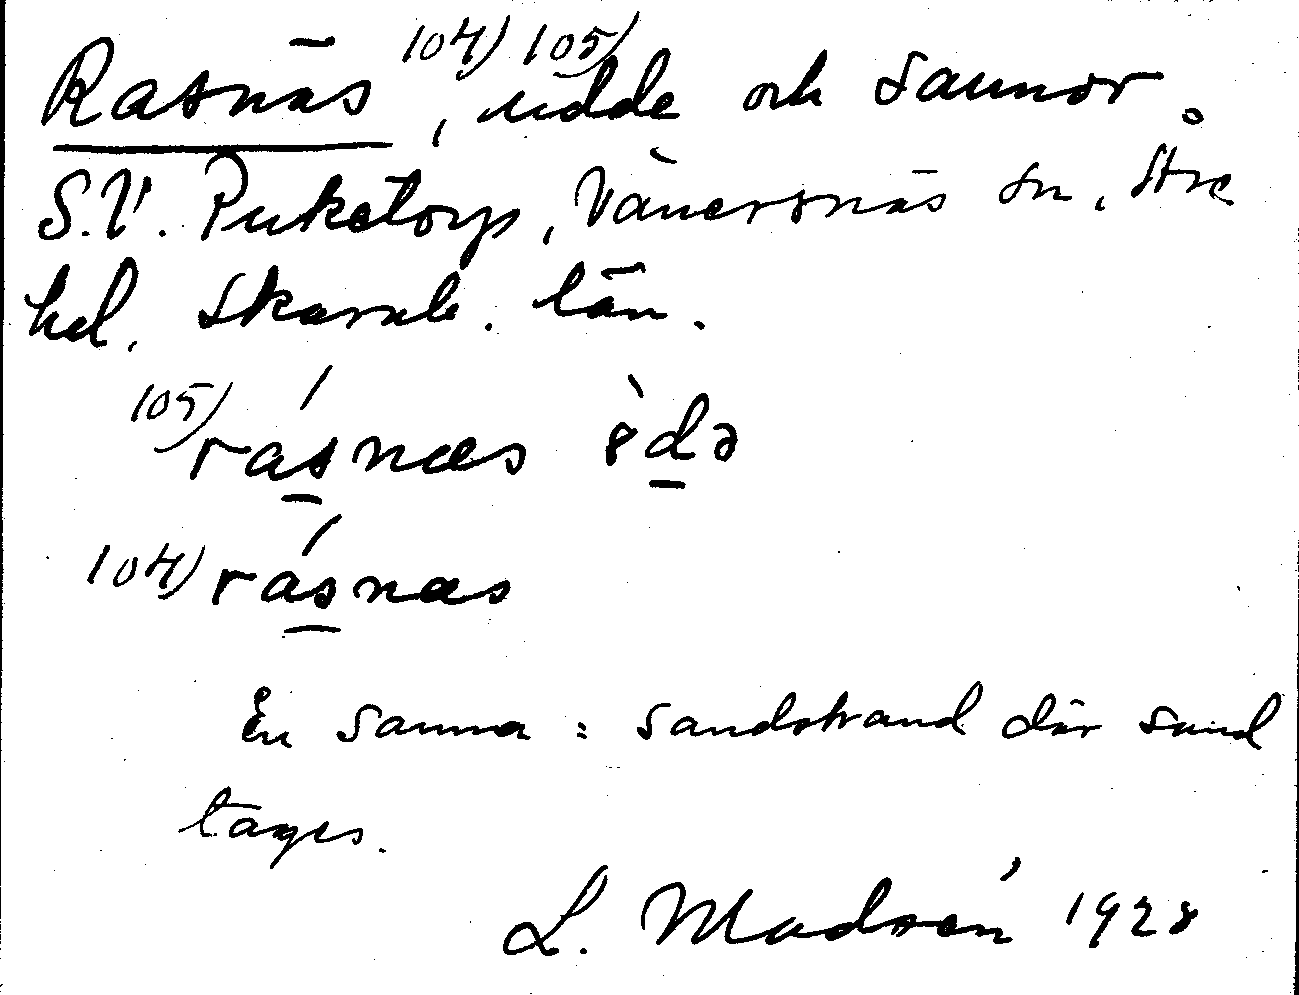 Rasnäs 104) 105), udde och sannor.
S.V. Puketorp, Vänersnäs sn, Åse
hd. Skarab. län.
105) rásnæs ò̤də
104) rásnæs
En sanna = sandstrand där sand
tages.
L. Madsén 1928